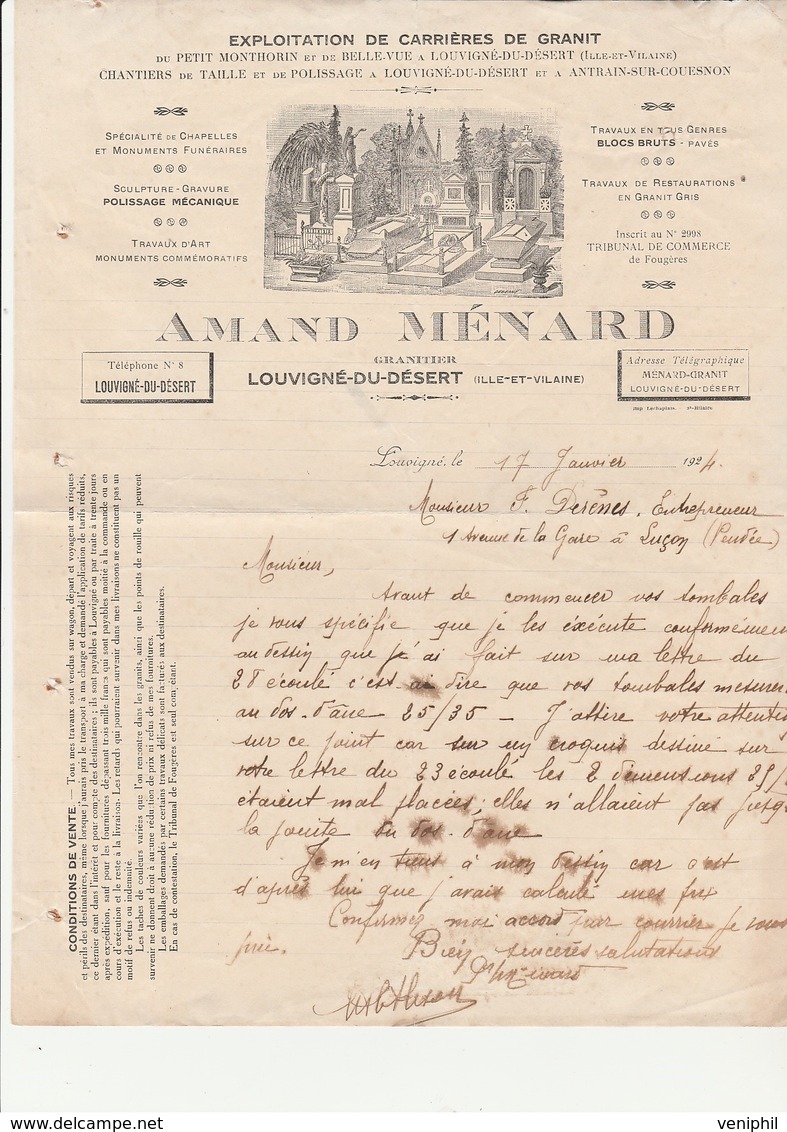 EXPLOITATION DE CARRIÈRES DE GRANIT
DU PETIT MONTHORIN ET DE BELLE-VUE A LOUVIGNÉ-DU-DÉSERT (ILLE-ET-VILAINE)
CHANTIERS DE TAILLE ET DE POLISSAGE A LOUVIGNÉ-DU-DÉSERT ET A ANTRAIN-SUR-COUESNON
SPÉCIALITÉ DE CHAPELLES
ET MONUMENTS FUNÉRAIRES
SCULPTURE - GRAVURE
POLISSAGE MÉCANIQUE
TRAVAUX D'ART
MONUMENTS COMMÉMORATIFS
TRAVAUX EN TOUS GENRES
BLOCS BRUTS - PAVÉS
TRAVAUX DE RESTAURATIONS
EN GRANIT GRIS
Inscrit au N° 2998
TRIBUNAL DE COMMERCE
de Fougères
AMAND MÉNARD
GRANITIER
LOUVIGNÉ-DU-DÉSERT (ILLE-ET-VILAINE)
Téléphone N° 8
LOUVIGNÉ-DU-DÉSERT
Adresse Télégraphique
MENARD-GRANIT
LOUVIGNÉ-DU-DÉSERT
Louvigné, le 17 Janvier 1924.
Monsieur F. Derênes, Entrepreneur
1 Avenue de la Gare à Luçon (Vendée)
Monsieur,
Avant de commencer vos tombales
je vous spécifie que je les éxécute conformémen
au dessin que j'ai fait sur ma lettre du
28 écoulé c'est ai dire que vos tombales mesurer
au dos-d'âne 25/35 - J'attire votre attentio
sur ce point car sur un croquis dessiné sur
votre lettre du 23 écoulé les 2 dimensions 25/
étaient mal placées; elles n'allaient pas jusqu
la pointe du dos-d'âne
Je m'en tiens à mon dessin car c'est
d'après lui que j'avais calculé mes prix
Confirmez moi accord par courrier je vous
prie.
Bien sincères salutations
CONDITIONS DE VENTE. — Tous mes travaux sont vendus sur wagon, départ et voyagent aux risques
et périls des destinataires, même lorsque j'aurais pris le transport à ma charge et demandé l'application de tarifs réduits,
ce dernier étant dans l'intérêt et pour compte des destinataires ; ils sont payables à Louvigné ou par traite à trente jours
après expédition, sauf pour les fournitures dépassant trois mille francs qui sont payables moitié à la commande ou en
cours d'exécution et le reste à la livraison. Les retards qui pourraient survenir dans mes livraisons ne constituent pas un
motif de refus ou indemnité.
Les taches de couleurs variées que l'on rencontre dans les granits, ainsi que les points de rouille qui peuvent
survenir ne donnent droit à aucune réduction de prix ni refus de mes fournitures.
Les emballages demandés par certains travaux délicats sont facturés aux destinataires.
En cas de contestation, le Tribunal de Fougères est seul compétent.
veniphil